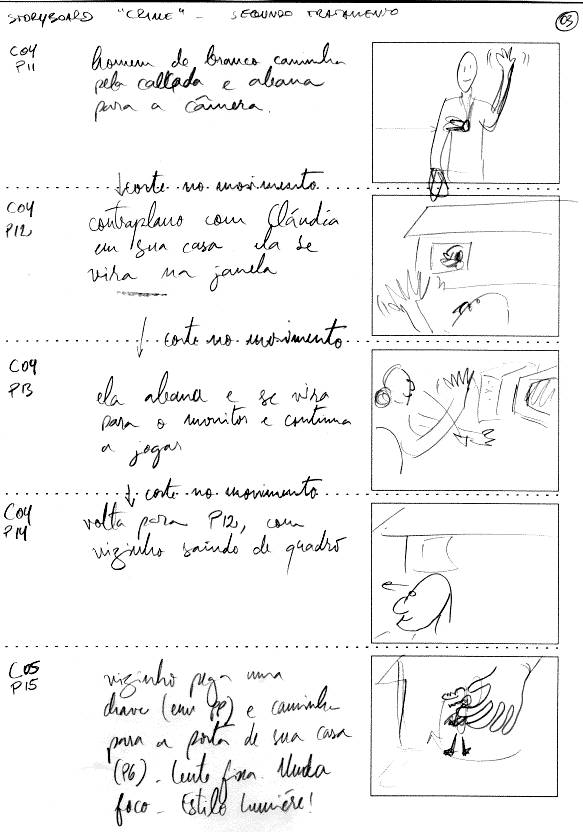 STORYBOARD "CRIME" - SEGUNDO TRATAMENTO
03
C04
P11
homem de branco caminha
pela calçada e abana
para a câmera.
↓corte no movimento
C04
P12
contraplano com Cláudia
em sua casa. ela se
vira na janela
↓ corte no movimento
C04
P13
ela abana e se vira
para o monitor e continua
a jogar
↓ corte no movimento
C04
P14
volta para P12, com
vizinho saindo de quadro
C05
P15
vizinho pega uma
chave (em PP) e caminha
para a porta de sua casa
(P6). Lente fixa. Muda
foco. Estilo Lumière!